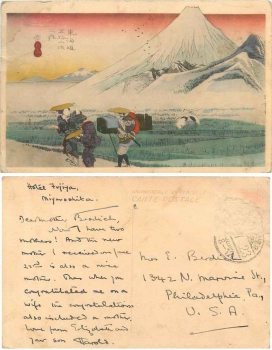 東海道
五拾三次
原
Hotel Fujiya,
Miyanoshita.
Dear mother Berdich,
Now I have two
mothers! And the new
mother I received on June
25th is also a nice
mother. Then when you
congratulated me on a
wife the congratulations
also included a mother.
Love from Elizabeth and
Your son Harold.
CARTE POSTALE
Mrs E. Berdich
1342 N. Marvine St,
Philadelphia Pa,
U. S. A.